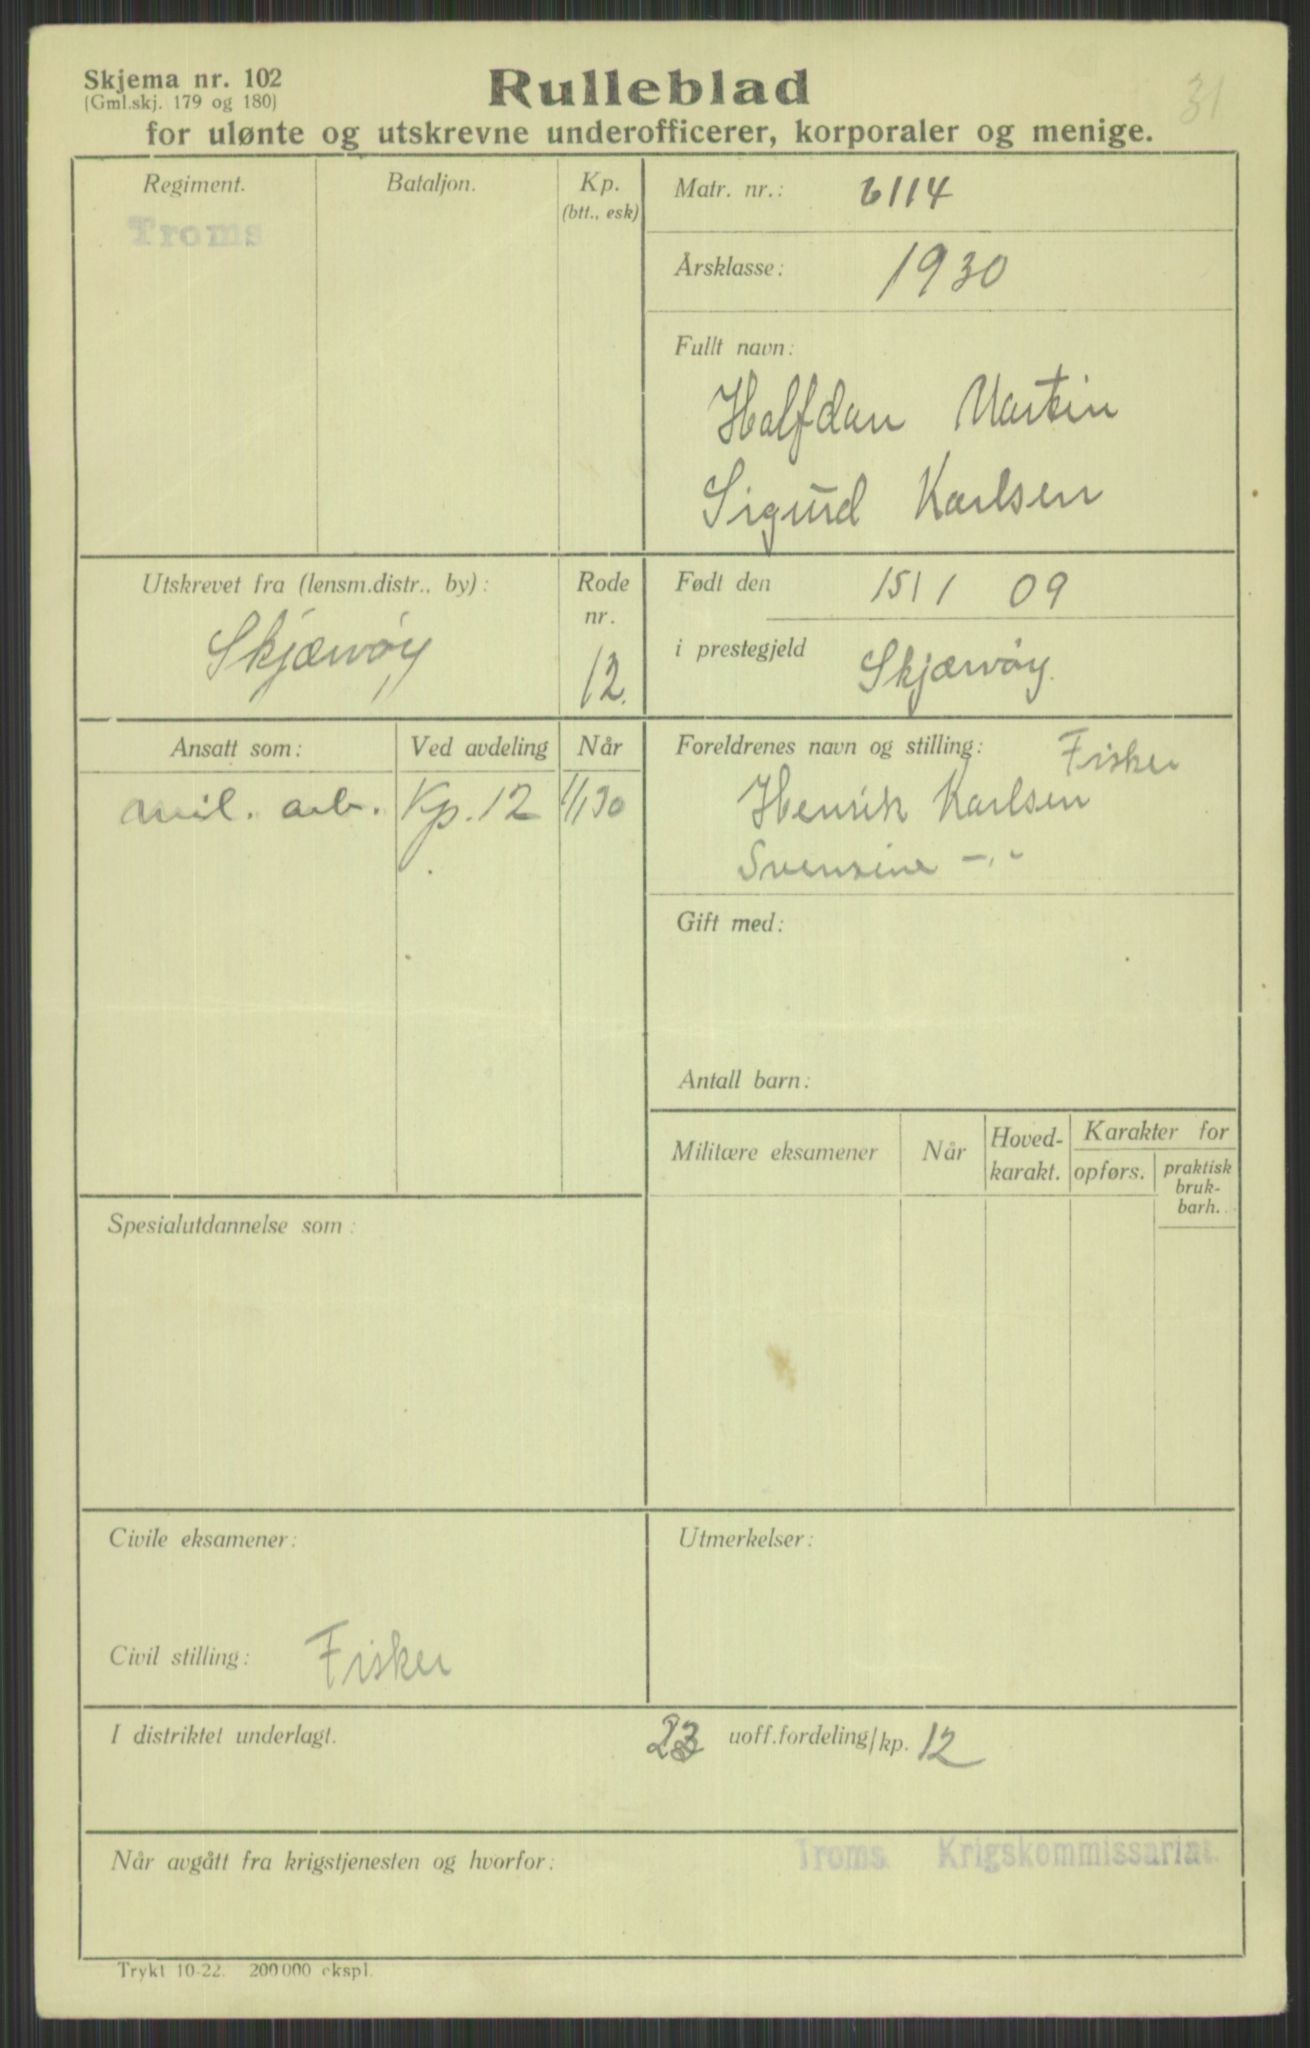 Skjema nr. 102
(Gml.skj. 179 og 180)
Rulleblad
31
for ulønte og utskrevne underofficerer, korporaler og menige.
Regiment.
Troms
Bataljon.
Kp.
(btt., esk)
Matr. nr.: 6114
Årsklasse: 1930
Fullt navn:
Halfdan Martin
Sigurd Karlsen
Utskrevet fra (lensm.distr., by):
Skjærvøy
Rode
nr.
12.
Født den 15/1 09
i prestegjeld Skjærvøy.
Ansatt som: Ved avdeling Når
mil. arb. Kp. 12 1/1 30
Foreldrenes navn og stilling: Fisker
Henrik Karlsen
Svensine -„-
Gift med:
Antall barn:
Militære eksamener
Når
Hoved-
karakt.
Karakter for
opførs.
praktisk
bruk-
barh.
Spesialutdannelse som:
Civile eksamener:
Civil stilling: Fisker
Utmerkelser:
I distriktet underlagt. uoff.fordeling/kp. 12
Når avgått fra krigstjenesten og hvorfor:
Troms Krigskommissariat.
Trykt 10-22. 200000 ekspl.